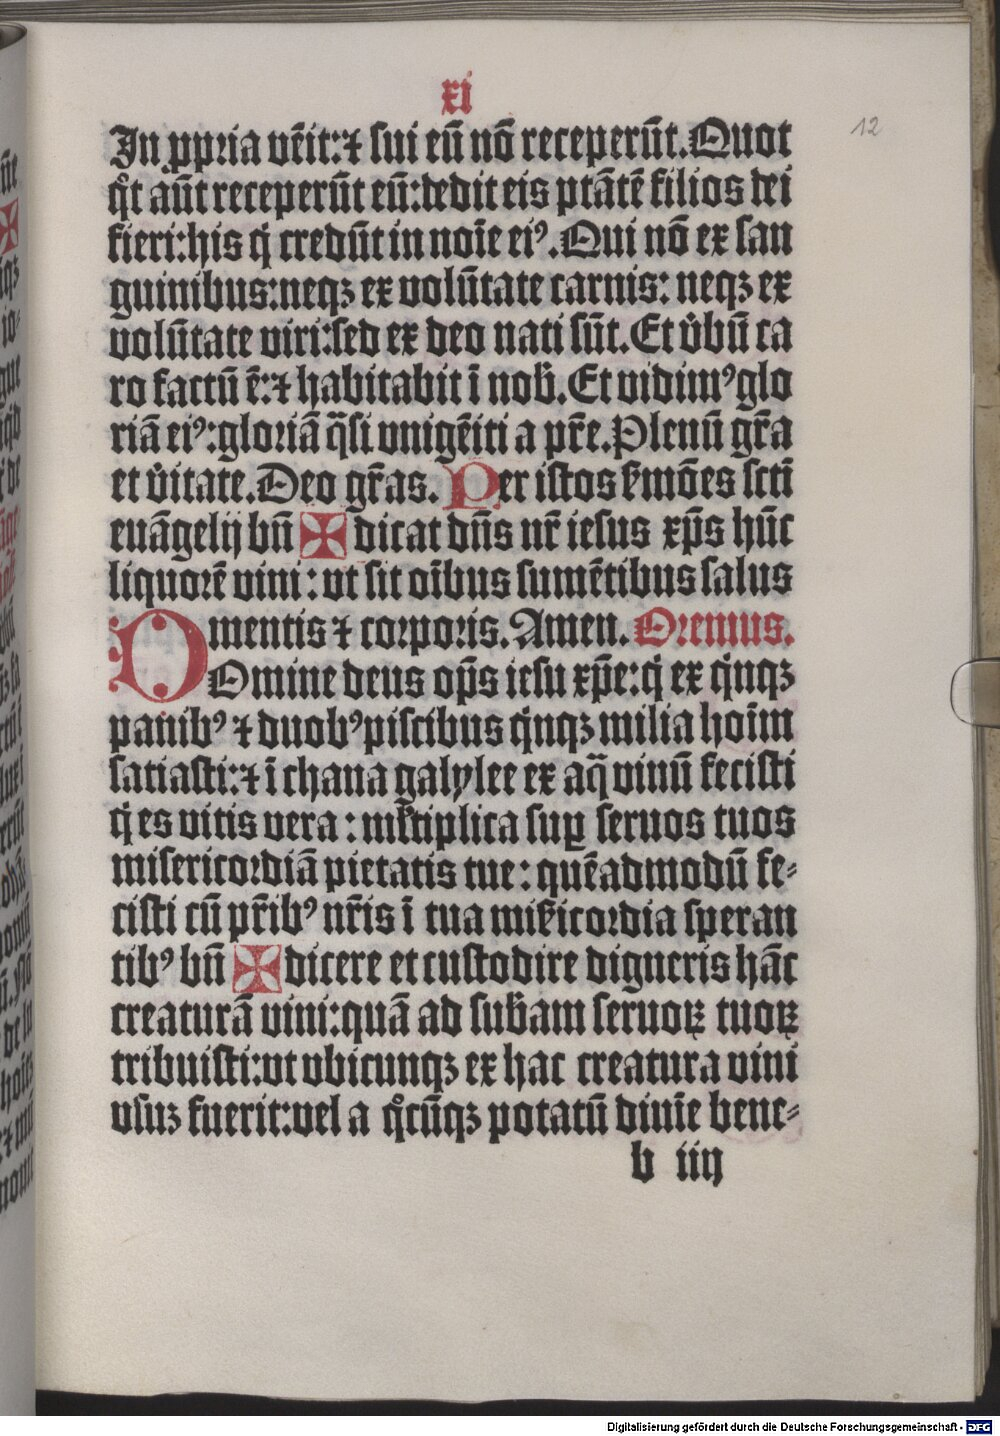 xi
12
In ꝓpria vēit:⁊ sui eū nō receperūt.Quot
qͦt aūt receperūt eū:dedit eis ptātē filios dei
fieri:his q̇ credūt in noīe eiꝰ.Qui nō ex san
guinibus:neqꝫ ex volūtate carnis: neqꝫ ex
volūtate viri:sed ex deo nati sūt.Et v̓bū ca
ro factū ē:⁊ habitabit ī nob̄.Et vidimꝰ glo
riā eiꝰ:gloriā q̄si vnigēiti a pr̄e.Plenū gr̄a
et v̓itate.Deo gr̄as. Per istos s̓mōes scti̅
euāgelij bn̄ ✠ dicat dn̄s nr̄ iesus xp̄s hūc
liquorē vini: vt sit oi̅bus sumētibus salus
mentis ⁊ corporis.Amen. Oremus.
DOmine deus op̄s iesu xp̄e:q̇ ex q̇nqꝫ
panibꝰ ⁊ duobꝰ piscibus q̇nqꝫ milia hoi̅m
satiasti:⁊ ī chana galylee ex aq̄ vinū fecisti
q̇ es vitis vera: ml̓tiplica suꝑ seruos tuos
misericordiā pietatis tue: quēadmodū fe⸗
cisti cū pr̄ibꝰ nr̄is ī tua mis̓icordia speran
tibꝰ bn̄ ✠ dicere et custodire digneris hāc
creaturā vini:quā ad sub̄am seruoꝝ tuoꝝ
tribuisti:vt vbicunqꝫ ex hac creatura vini
vsuꝫ fuerit:vel a qͦcūqꝫ potatū diuīe bene⸗
b iiij
Digitalisierung gefördert durch die Deutsche Forschungsgemeinschaft - DFG